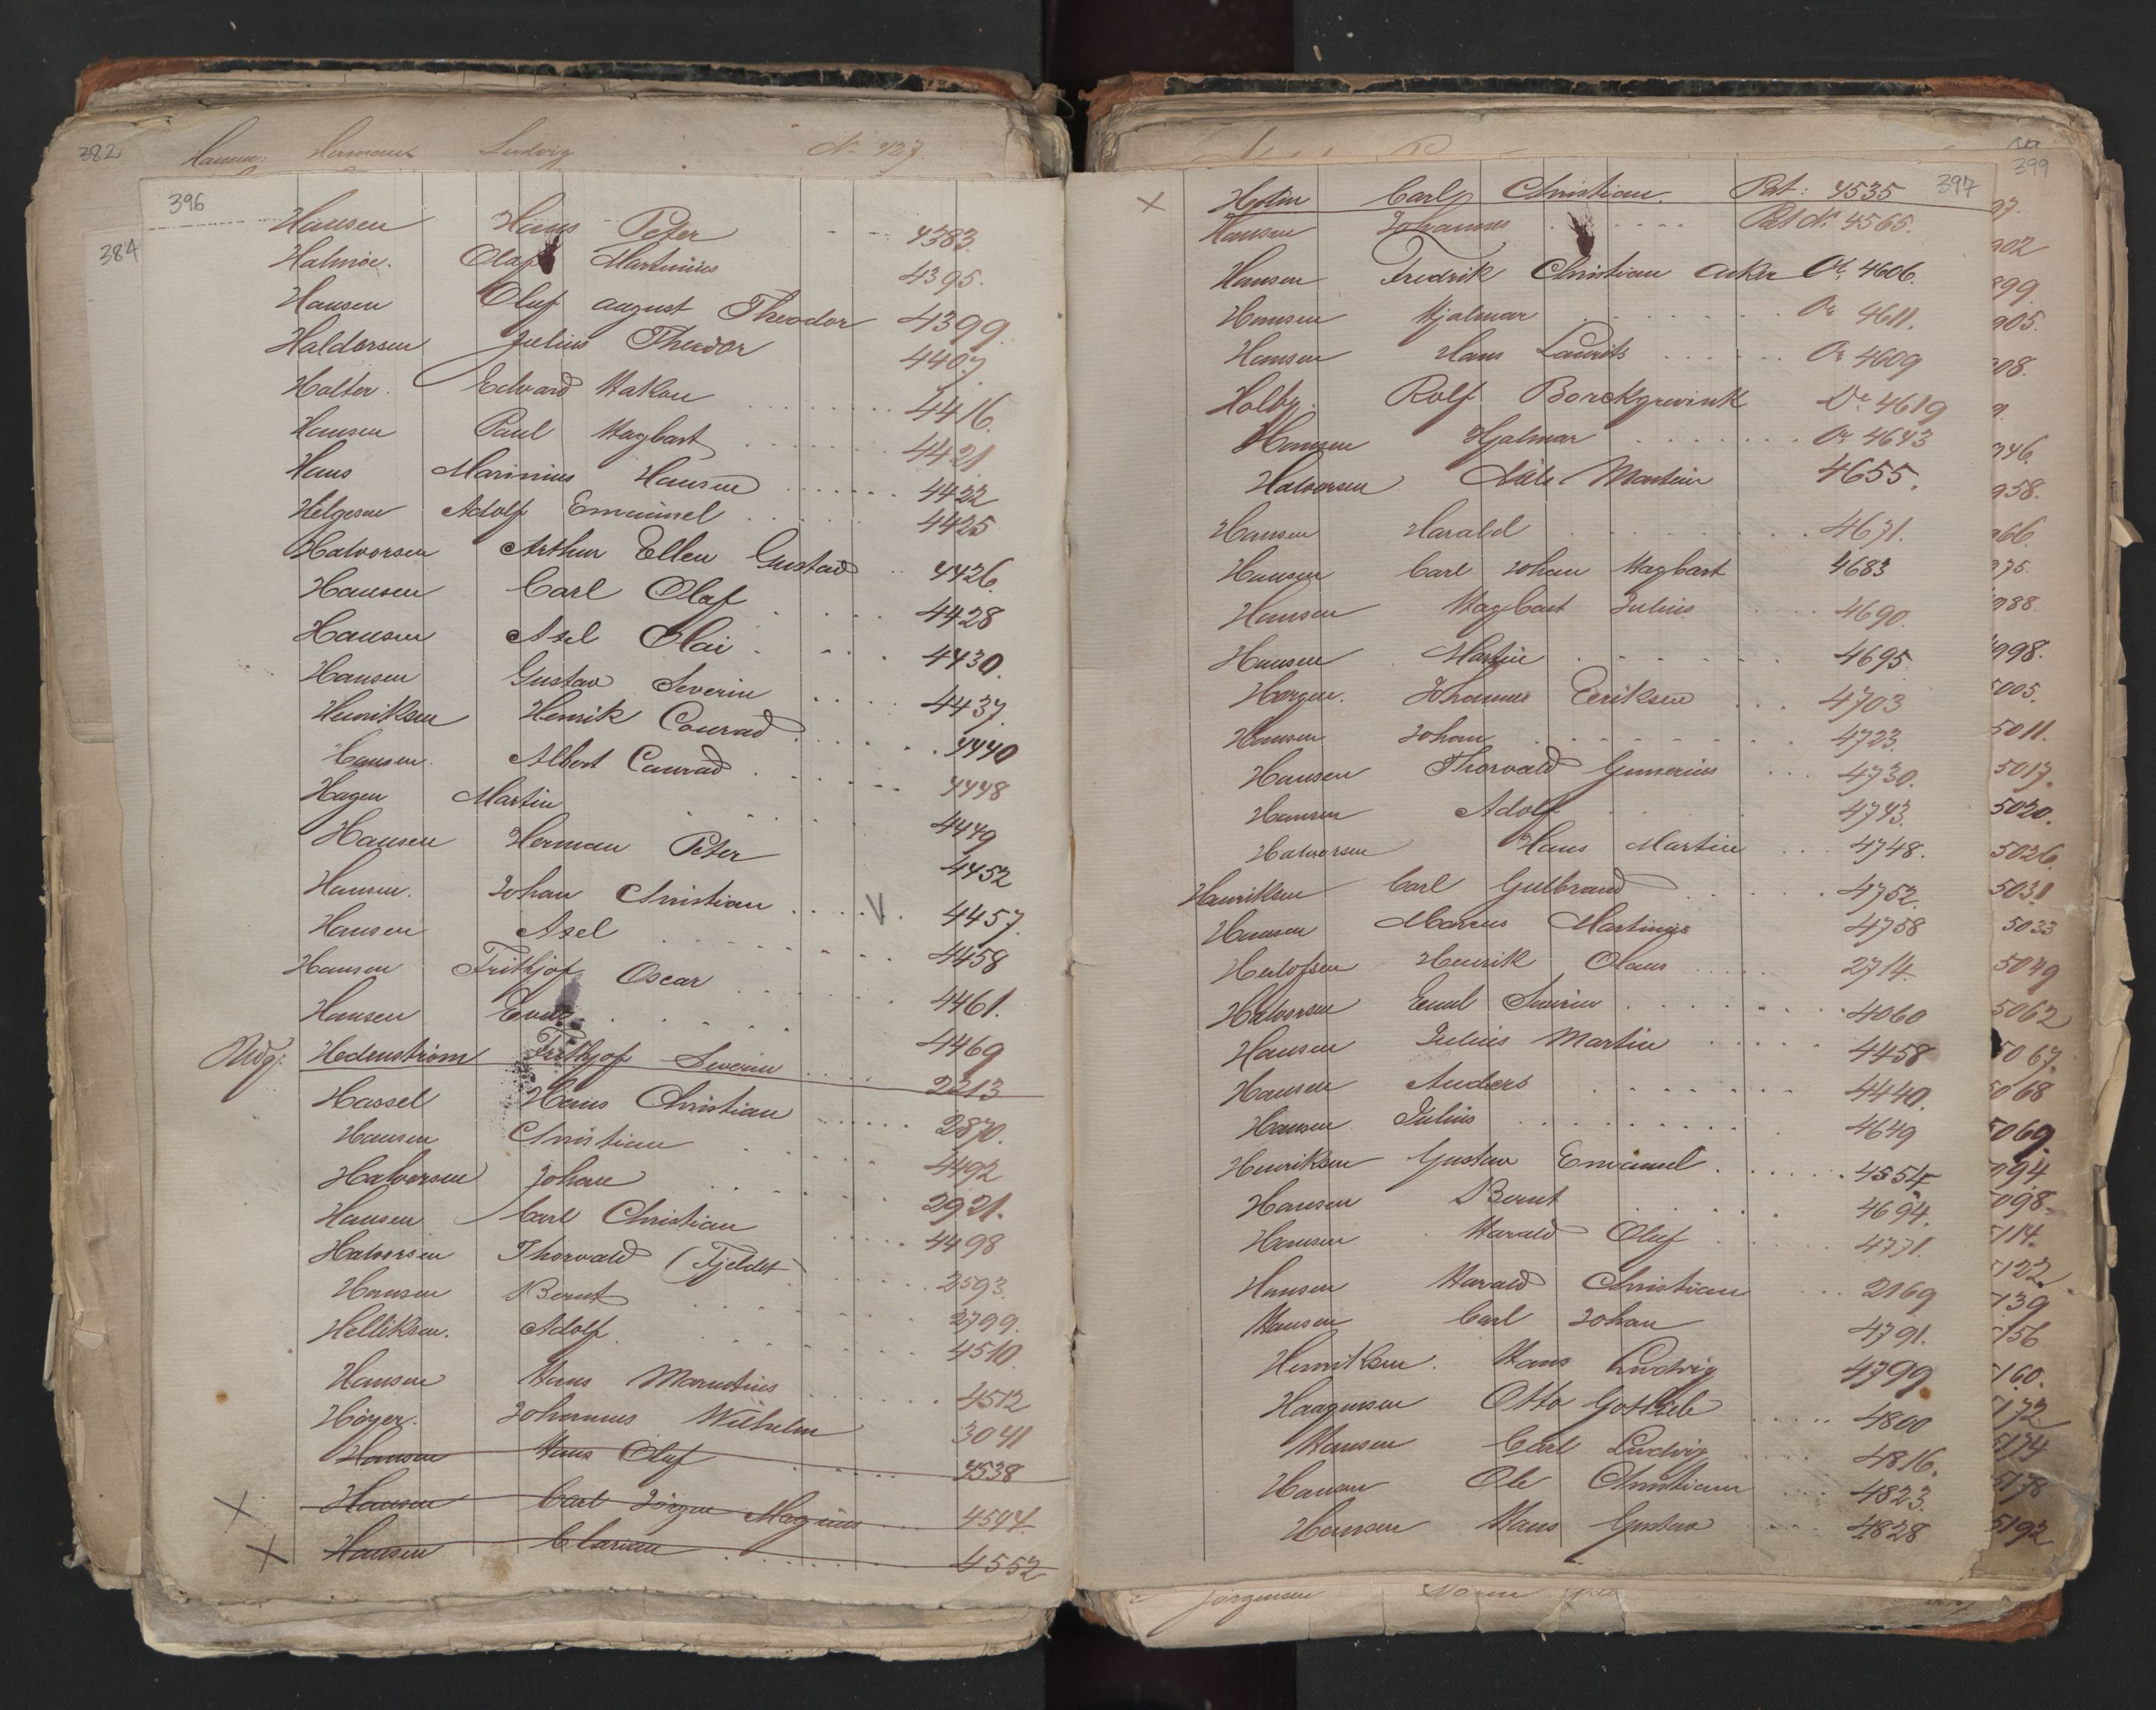 382
Hansen Hermann Ludvig No 427
396
384
Hansen Hans Peter 4383.
Halmøe. Olaf Martinius 4395.
Hansen Oluf August Theodor 4399.
Haldorsen Julius Theodor 4407.
Holter. Edvard Hakon 4416.
Hansen Paul Hagbart 4421.
Hans Marinius Hansen 4422
Helgesen Adolf Emanuel 4425
Halvorsen Arthur Ellen Gustav 4426.
Hansen Carl Olaf 4428
Hansen Axel Olai 4430.
Hansen Gustav Severin 4437.
Henriksen Henrik Conrad 4440
Hansen. Albert Conrad 4448
Hagen Martin 4449
Hansen Herman Peter 4452
Hansen. Johan Christian V 4457.
Hansen Axel 4458
Hansen Frithjof Oscar 4461.
Hansen 4469
Udg: Hedenstrøm Frithjof Severin 2213
Hassel Hans Christian 2870.
Hansen Christian 4492
Halvorsen Johan 2921.
Hansen Carl Christian 4498
Halvorsen Thorvald (Fjeldet) 2593.
Hansen Bernt 2799.
Helliksen. Adolf. 4510.
Hansen Hans Marentius 4512
Höyer. Johannes Wilhelm 3041
Hansen Hans Oluf 4538
X Hansen Carl Jörgen Magnus 4594.
X Hansen 4552
397
399
X Holm Carl Christian. Pat: 4535
Hansen Johannes Pat No 4565.
Hansen Fredrik Christian Anker 4606.
Hansen Hjalmar 4611.
Hansen Hans Laurits 4609
Holby. Rolf Borchgrevink 4619
Hansen Hjalmar 4643
Halvorsen Nils Martin 4655.
Hansen Harald 4671.
Hansen Carl Johan Hagbart 4683
Hansen Hagbart Julius 4690.
Hansen Martin 4695
Horgen. Johannes Eeriksen 4703
Hansen Johan 4723.
Hansen Thorvald Gunerius 4730.
Hansen Adolf 4743.
Halvorsen Hans Martin 4748.
Henriksen Carl Gulbrand 4752.
Hansen Marius Martinius 4758
Herlofsen Henrik Olaus 2714.
Halvorsen Emil Severin 4060
Hansen Julius Martin 4458
Hansen Anders 4440.
Hansen Julius 4649
Henriksen Gustav Emanuel 4554
Hansen Bernt 4694.
Hansen Harald Oluf 4771.
Hansen Harald Christian 2169
Hansen Carl Johan 4791.
Henriksen. Hans Ludvig 4799
Haagensen Otto Gottlieb 4800
Hansen Carl Ludvig 4816.
Hansen Ole Christian 4823.
Hansen Hans Gustav 4828
902
899
905.
908.
946.
958.
966.
975.
988.
4998.
5005.
5011.
5017.
5020.
5026.
5031
5033
5049
5062
5067.
5068
5069.
5094.
5098.
5114.
5122
5139
5156
5160.
5172
5174
5178
5192
Jörgensen